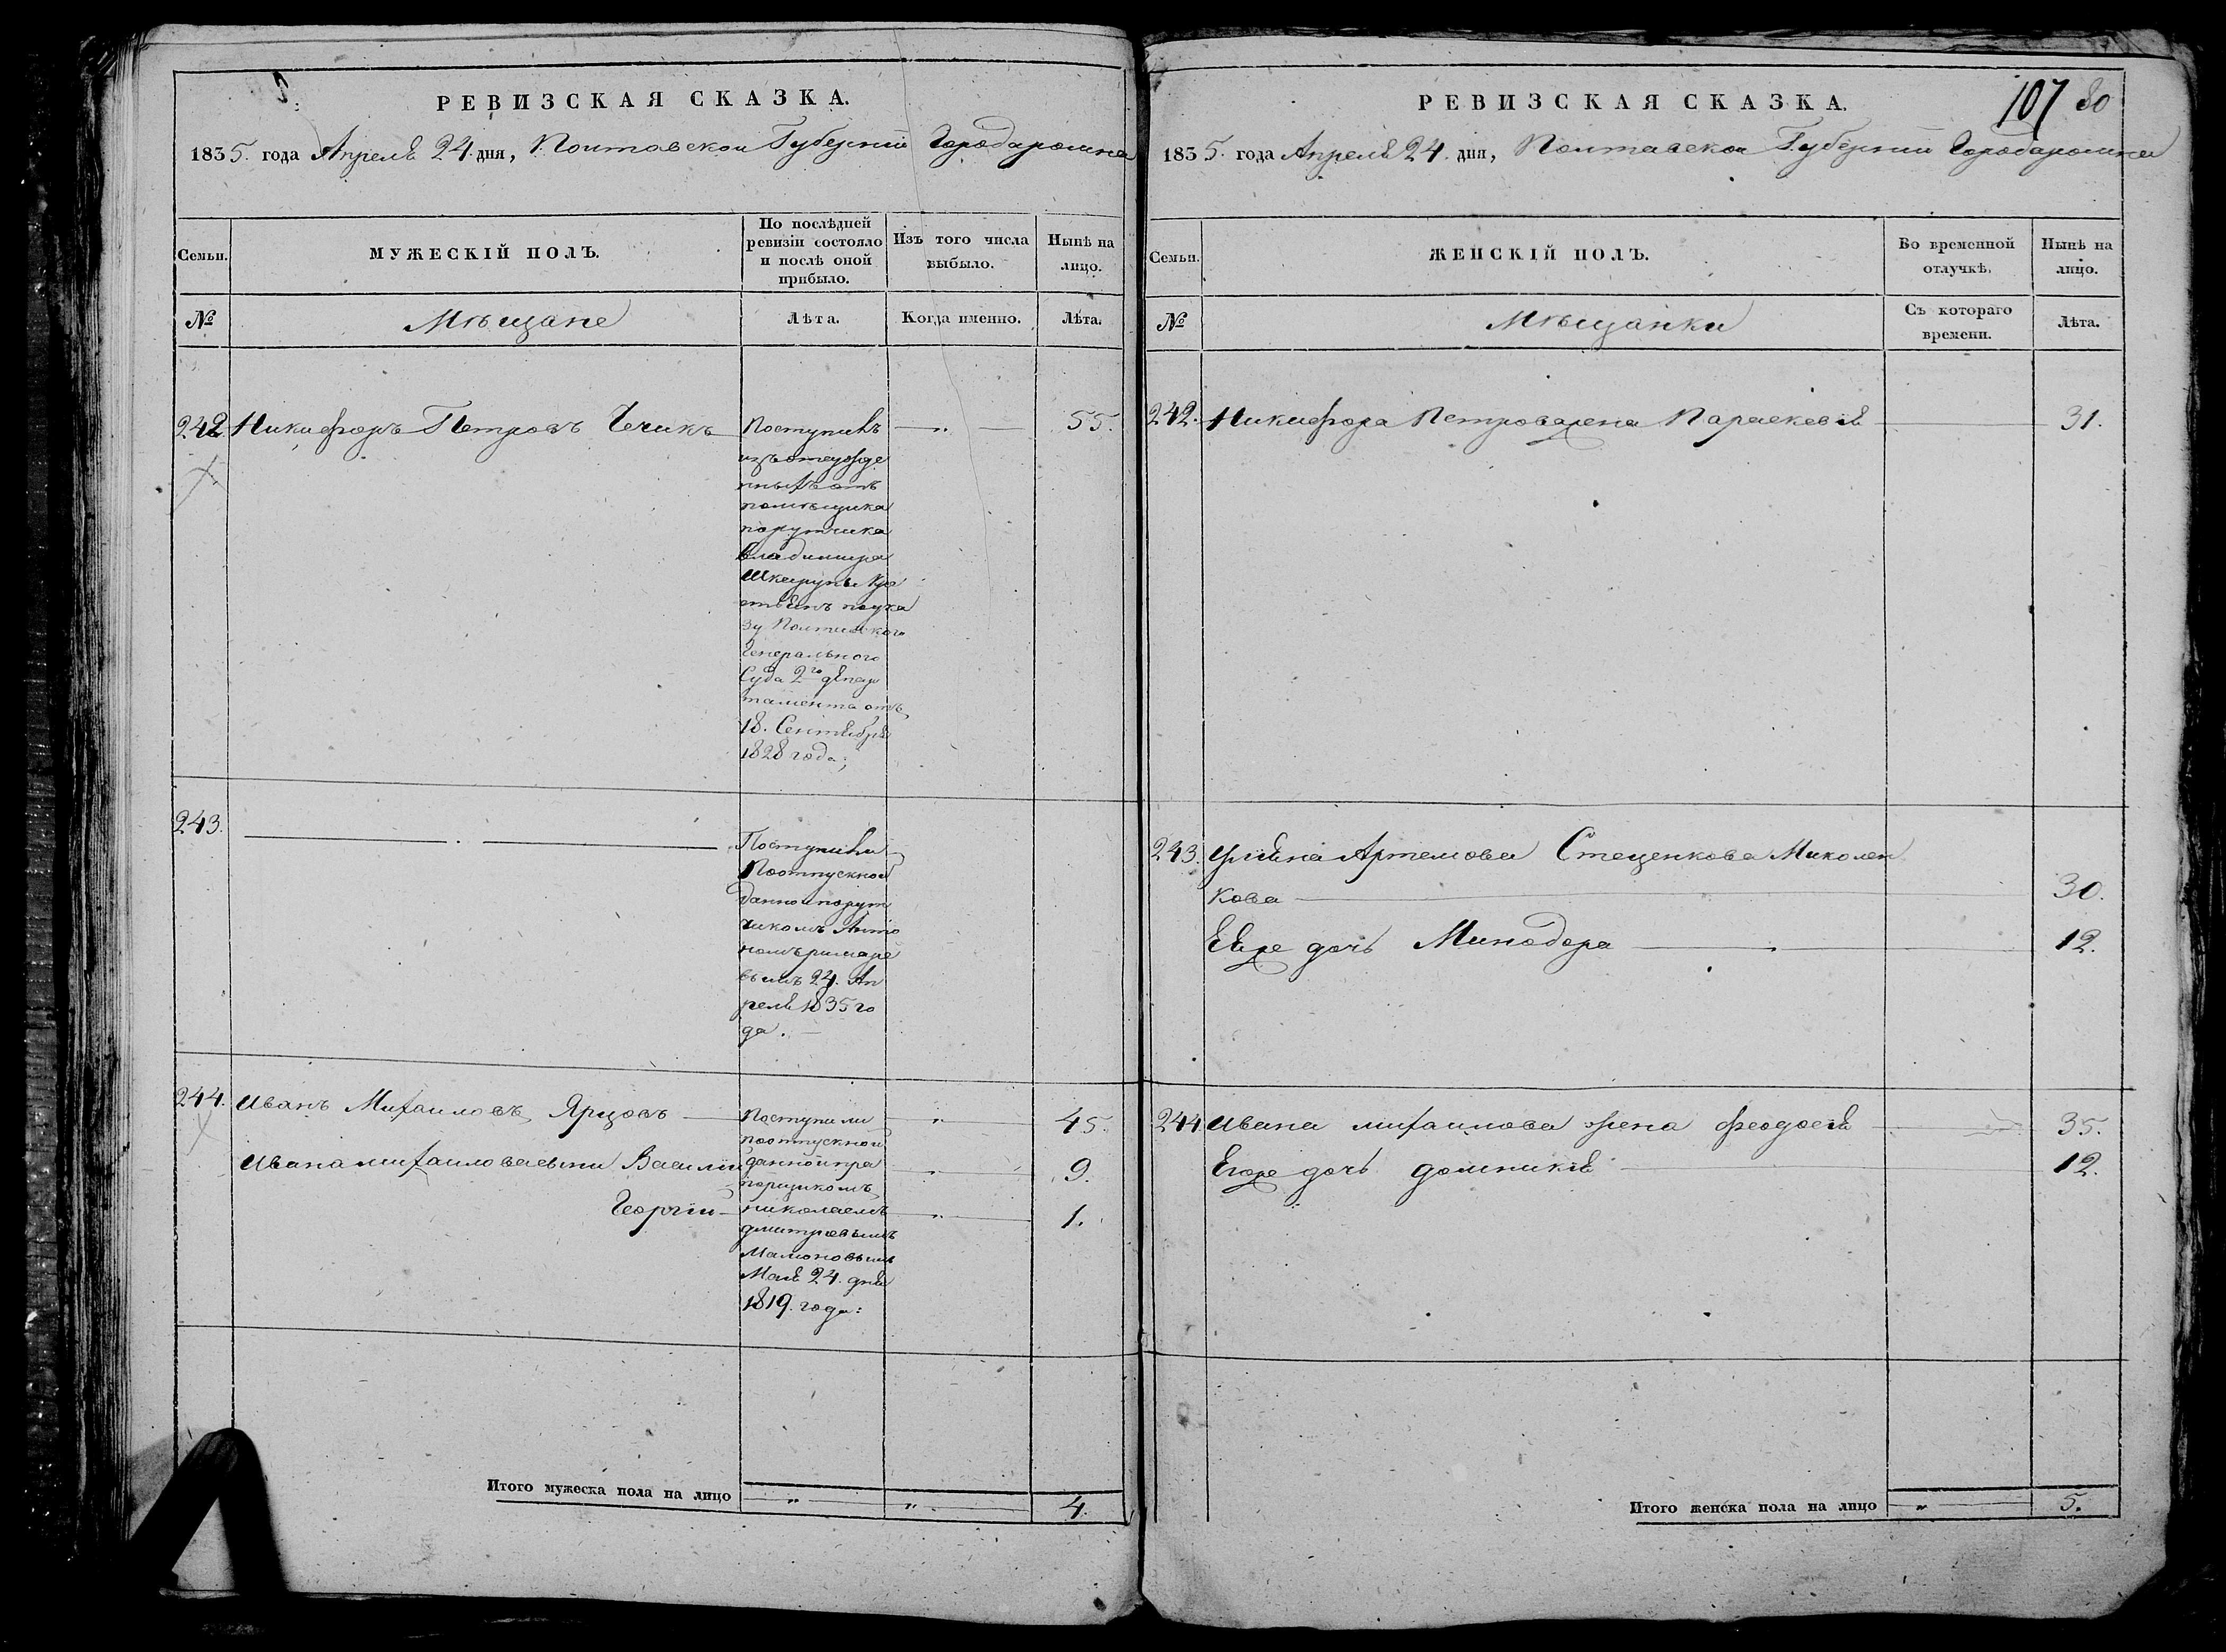 РЕВИЗСКАЯ СКАЗКА.
1835. года Апреля 24. дня, Полтавской Губернии Города Ромна
Семьи.
МУЖЕСКІЙ ПОЛЪ.
По послѣдней ревизіи состояло и послѣ оной прибыло.
Изъ того числа выбыло.
Нынѣ на лицо.
№
Мѣщане
Лѣта.
Когда именно.
Лѣта.
242 Никифоръ Петровъ Чечикъ
Поступилъ
помѣщика
порутчика
Владимира
ствянъ поука
зу Полтавского
Генерального
Суда 2го депар
тамента отъ
18. Сентября
1828 года;
55.
243.
Поступили
По отпускной
данной порут
чикомъ Анто
номъ римаре
вымъ 24. Ап
реля 1835 го
да.
244. Иванъ Михаиловъ Ярцовъ
45.
Ивана михаилова сыни Василий
9.
Георгии
1.
Поступили
по отпускной
данной пра
порщикомъ
николаемъ
дмитровымъ
Мамоновымъ
Мая 24. дня
1819. года:
Итого мужеска пола на лицо
4.
РЕВИЗСКАЯ СКАЗКА.
107 80
1835. года Апреля 24. дня, Полтавской Губернии Города Ромна
Семьи.
ЖЕНСКІЙ ПОЛЪ.
Во временной отлучкѣ.
Нынѣ на лицо.
№
Мѣщанки
Съ котораго времени.
Лѣта.
242. Никифора Петрова жена Параскевия 31.
243. Улияна Артемова Стеценкова Миколен
кова 30.
Ея же дочь Минодора 12.
244 Ивана михаилова жена феодосия 35.
Его же дочь домникия 12.
Итого женска пола на лицо
5.